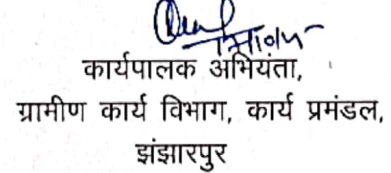 कार्यपालक अभियंता,
ग्रामीण कार्य विभाग, कार्य प्रमंडल,
झंझारपुर